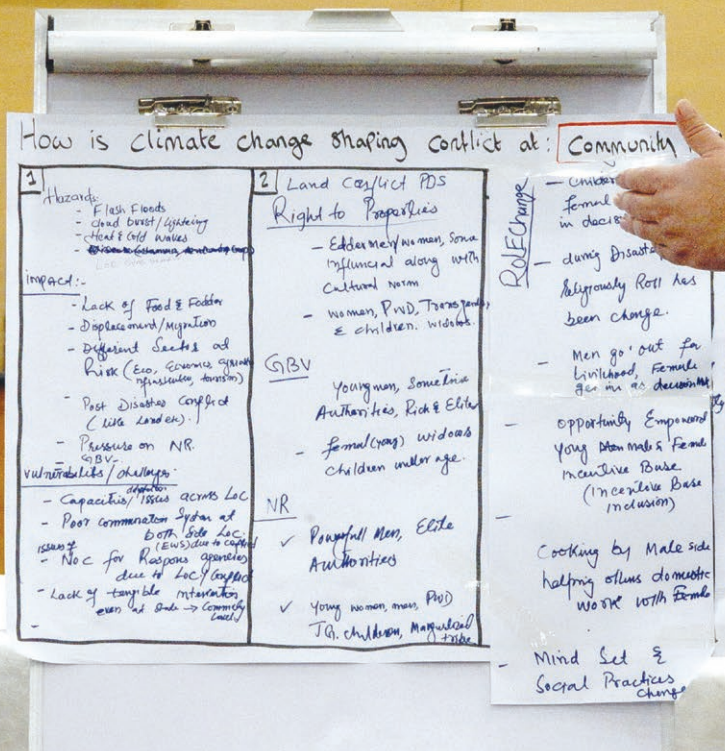 How is climate change shaping conflict at: Community
1
Hazards:
- Flash Floods
- cloud burst/Lightening
- Heat & Cold waves
Impact:-
- Lack of Food & Fodder
- Displacement/Migration
- Different Sector at
Risk (Eco, 
tourism)
- Post Disaster Conflict
(Like Land etc).
- Pressure on NR.
- GBV-
Vulnerabilities/challenges.
- Capacities/issues across LoC
- Poor communication System at
both Side LoC.
issues of (EWS) due to conflict
- NOC for Respons agencies
due to LoC/Conflict
- Lack of tangible interaction
even at State → Community
Level)
-
2 Land Conflict PDS
Right to Properties
- Edder men/women, Some
influncial along with
Cultural norm
- women, PWD, Transgender,
& children. widows.
GBV
Young men, Sometime
Authorities, Rich & Elite
- femal(young) widows
children under age.
NR
✓ Powerfull Men, Elite
Authorities
✓ Young women, men, PWD
TG. children, Marginalized
tribe
RolE Change
- Children
femal
in decis
- during Disaste
Religiously Roll has
been change.
- Men go out for
Livlihood, Female
get in as
- opportunity Empowered
young males & Female
incentive Base
(Incentive Base
inclusion)
-
Cooking by Male side
helping others domestic
work with Female
- Mind Set &
Social Practices
change